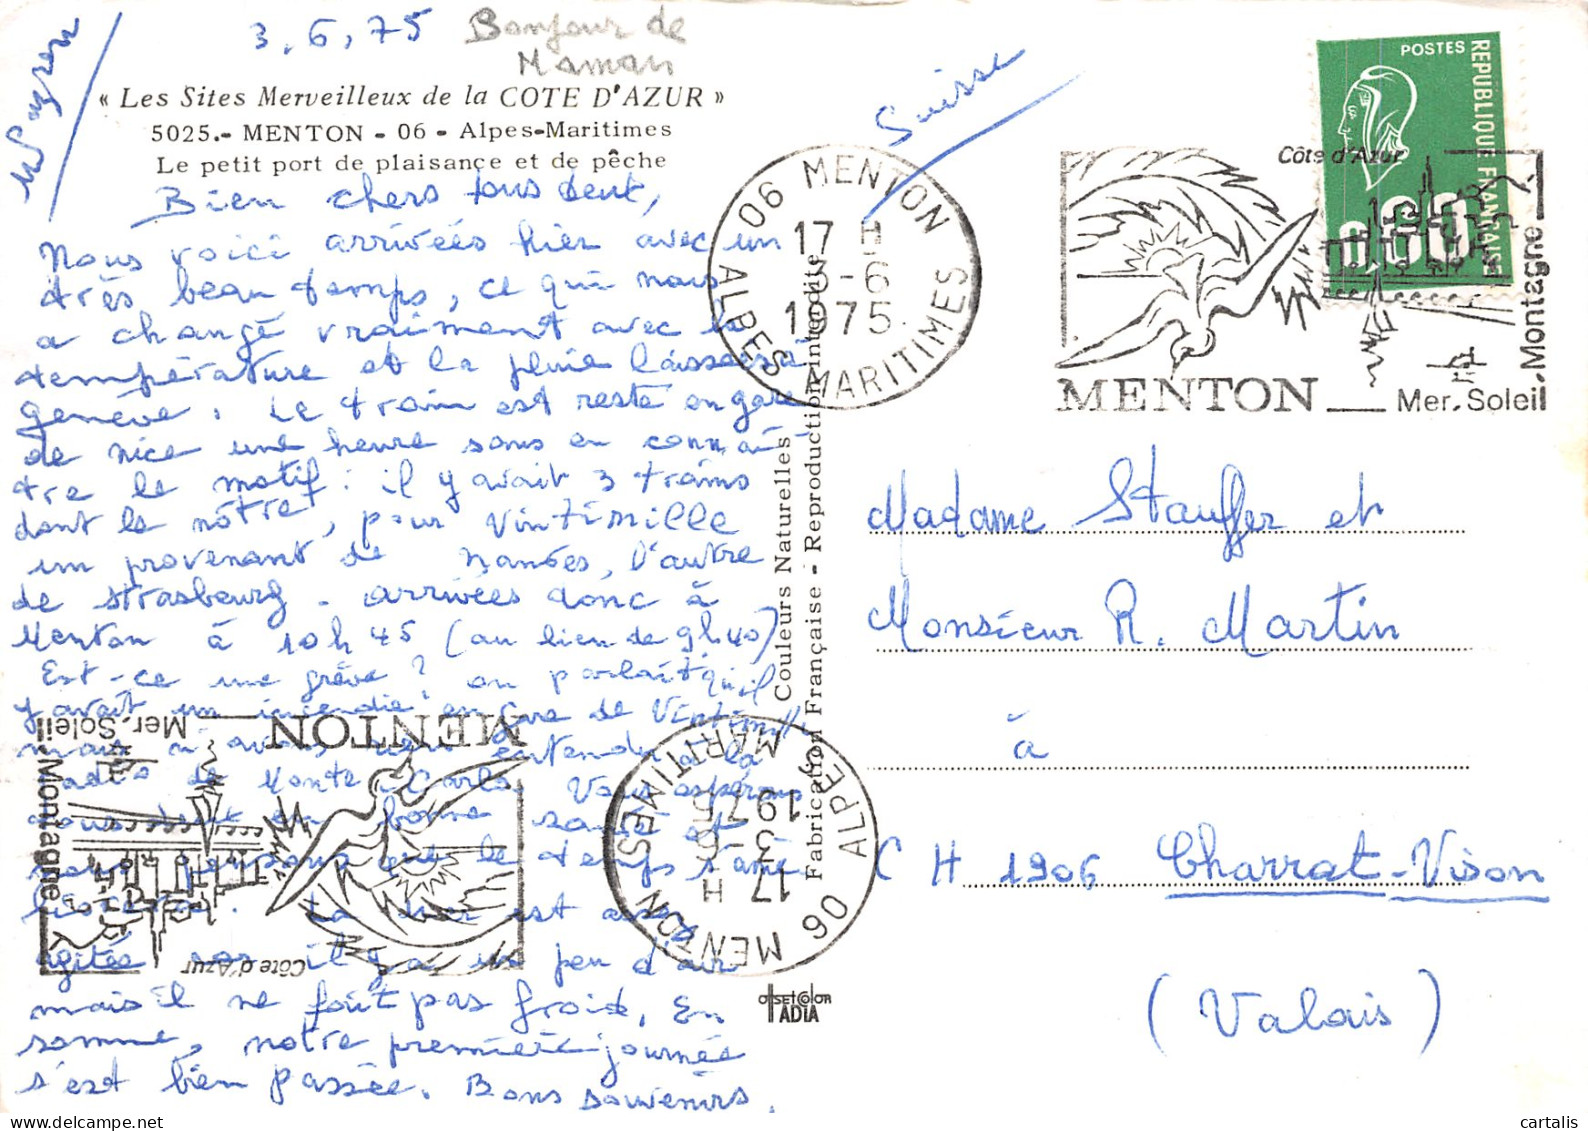 3.6.75
Bonjour de
Maman
« Les Sites Merveilleux de la COTE D'AZUR »
5025.- MENTON - 06 - Alpes-Maritimes
Le petit port de plaisance et de pêche
Bien chers tous deux,
Nous voici arrivées hier avec un
très beau temps, ce qui nous
a changé vraiment avec la
température et la pluie laissées à
Genève. Le train est resté en gare
de Nice une heure sans en connaî-
tre le motif : il y avait 3 trains
dont le nôtre, pour Vintimille
un provenant de Nantes, l'autre
de Strasbourg. arrivées donc à
Menton à 10h 45 (au lieu de 9h.40)
Est-ce une grève? on parlait qu'il
y avait un incendie en gare de Vintimille
mais n'avons rien entendu à la
radio de Monte Carlo. Vous espérons
tous deux en bonne santé et
que le temps s'amé-
liorera. La mer est assez
agitée car il y a un peu d'air
mais il ne fait pas froid. En
somme, notre première journée
s'est bien passée. Bons souvenirs.
Suisse
06 MENTON
17 H
3-6
1975
ALPES MARITIMES
Côte d'Azur
MENTON
Mer. Soleil. Montagne
POSTES
REPUBLIQUE FRANÇAISE
0,60
Couleurs Naturelles
Fabrication Française - Reproduction interdite
Madame Stauffer et
Monsieur R. Martin
à
CH 1906 Charrat-Vison
(Valais)
MENTON
Mer. Soleil. Montagne
Côte d'Azur
06 MENTON
17 H
3-6
1975
ALPES MARITIMES
OffSETCOlOR
ADIA
© delcampe.net
cartalis